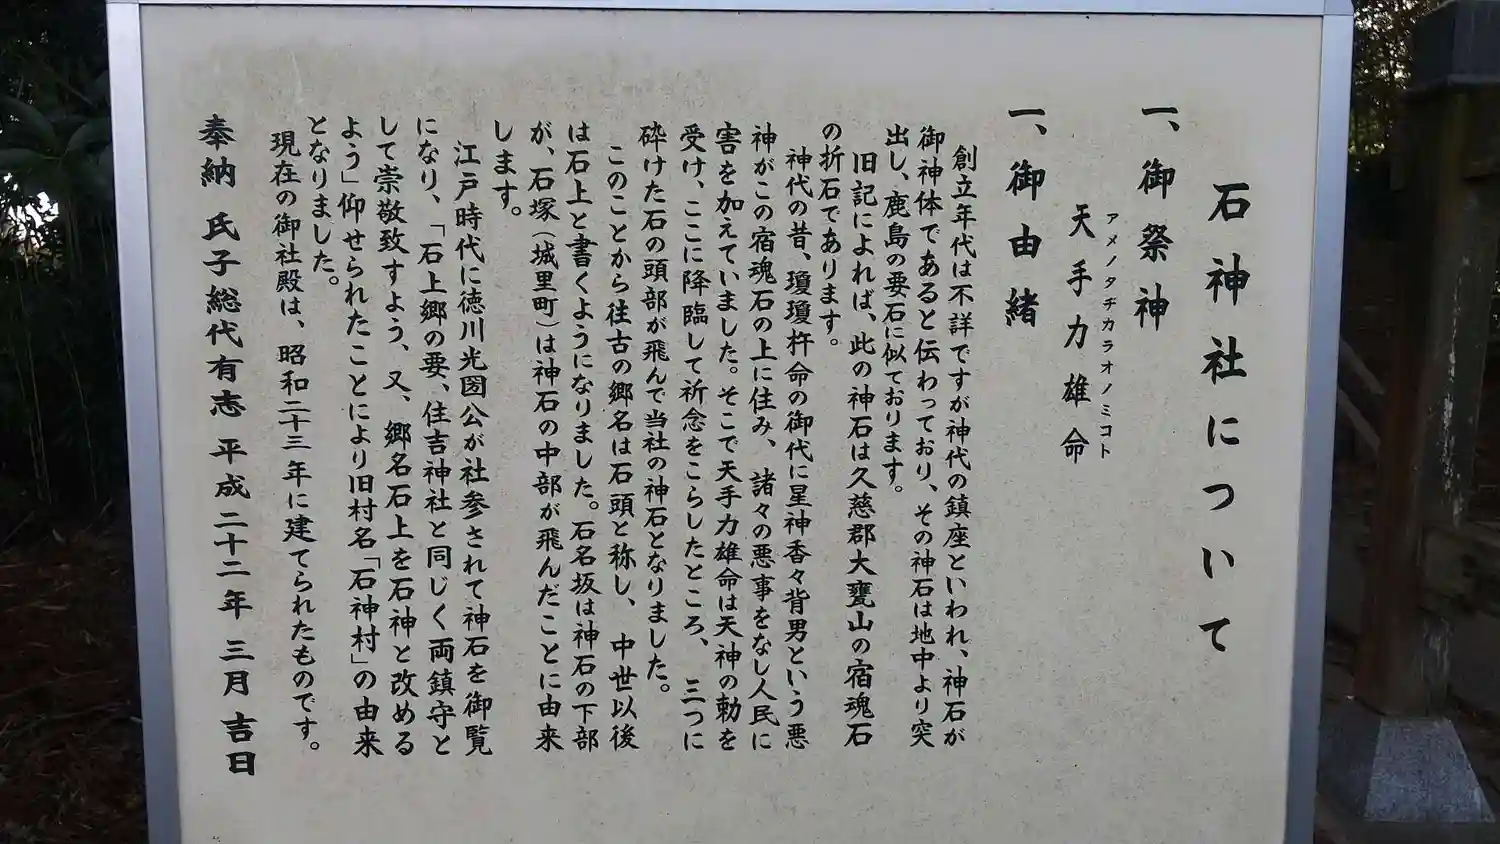 石神社について
一、御祭神
アメノタヂカラオノミコト
天手力雄命
一、御由緒
創立年代は不詳ですが神代の鎮座といわれ、神石が
御神体であると伝わっており、その神石は地中より突
出し、鹿島の要石に似ております。
旧記によれば、此の神石は久慈郡大甕山の宿魂石
の折石であります。
神代の昔、瓊瓊杵命の御代に星神香々背男という悪
神がこの宿魂石の上に住み、諸々の悪事をなし人民に
害を加えていました。そこで天手力雄命は天神の勅を
受け、ここに降臨して祈念をこらしたところ、三つに
砕けた石の頭部が飛んで当社の神石となりました。
このことから往古の郷名は石頭と称し、中世以後
は石上と書くようになりました。石名坂は神石の下部
が、石塚（城里町）は神石の中部が飛んだことに由来
します。
江戸時代に徳川光圀公が社参されて神石を御覧
になり、「石上郷の要、住吉神社と同じく両鎮守と
して崇敬致すよう、又、郷名石上を石神と改める
よう」仰せられたことにより旧村名「石神村」の由来
となりました。
現在の御社殿は、昭和二十三年に建てられたものです。
奉納 氏子総代有志 平成二十二年 三月 吉日